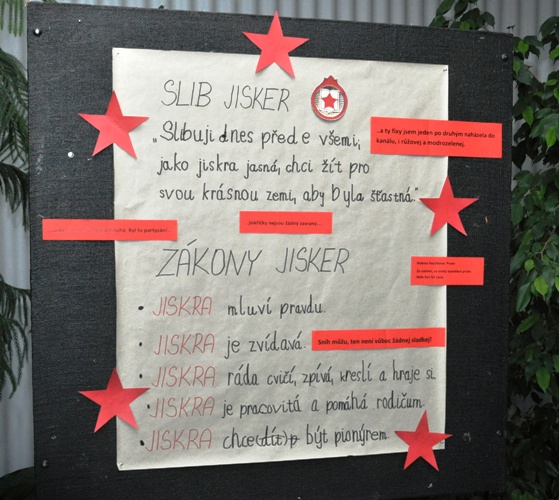 SLIB JISKER
„Slibuji dnes přede všemi,
jako jiskra jasná, chci žít pro
svou krásnou zemi, aby byla šťastná."
...a ty fixy jsem jeden po druhým naházela do
kanálu, i růžovej a modrozelenej.
Byl to partyzán!
ZÁKONY JISKER
• JISKRA mluví pravdu.
• JISKRA je zvídavá.
Sníh můžu, ten není vůbec žádnej sladkej!
• JISKRA ráda cvičí, zpívá, kreslí a hraje si.
• JISKRA je pracovitá a pomáhá rodičům.
• JISKRA chce (dít) p být pionýrem.